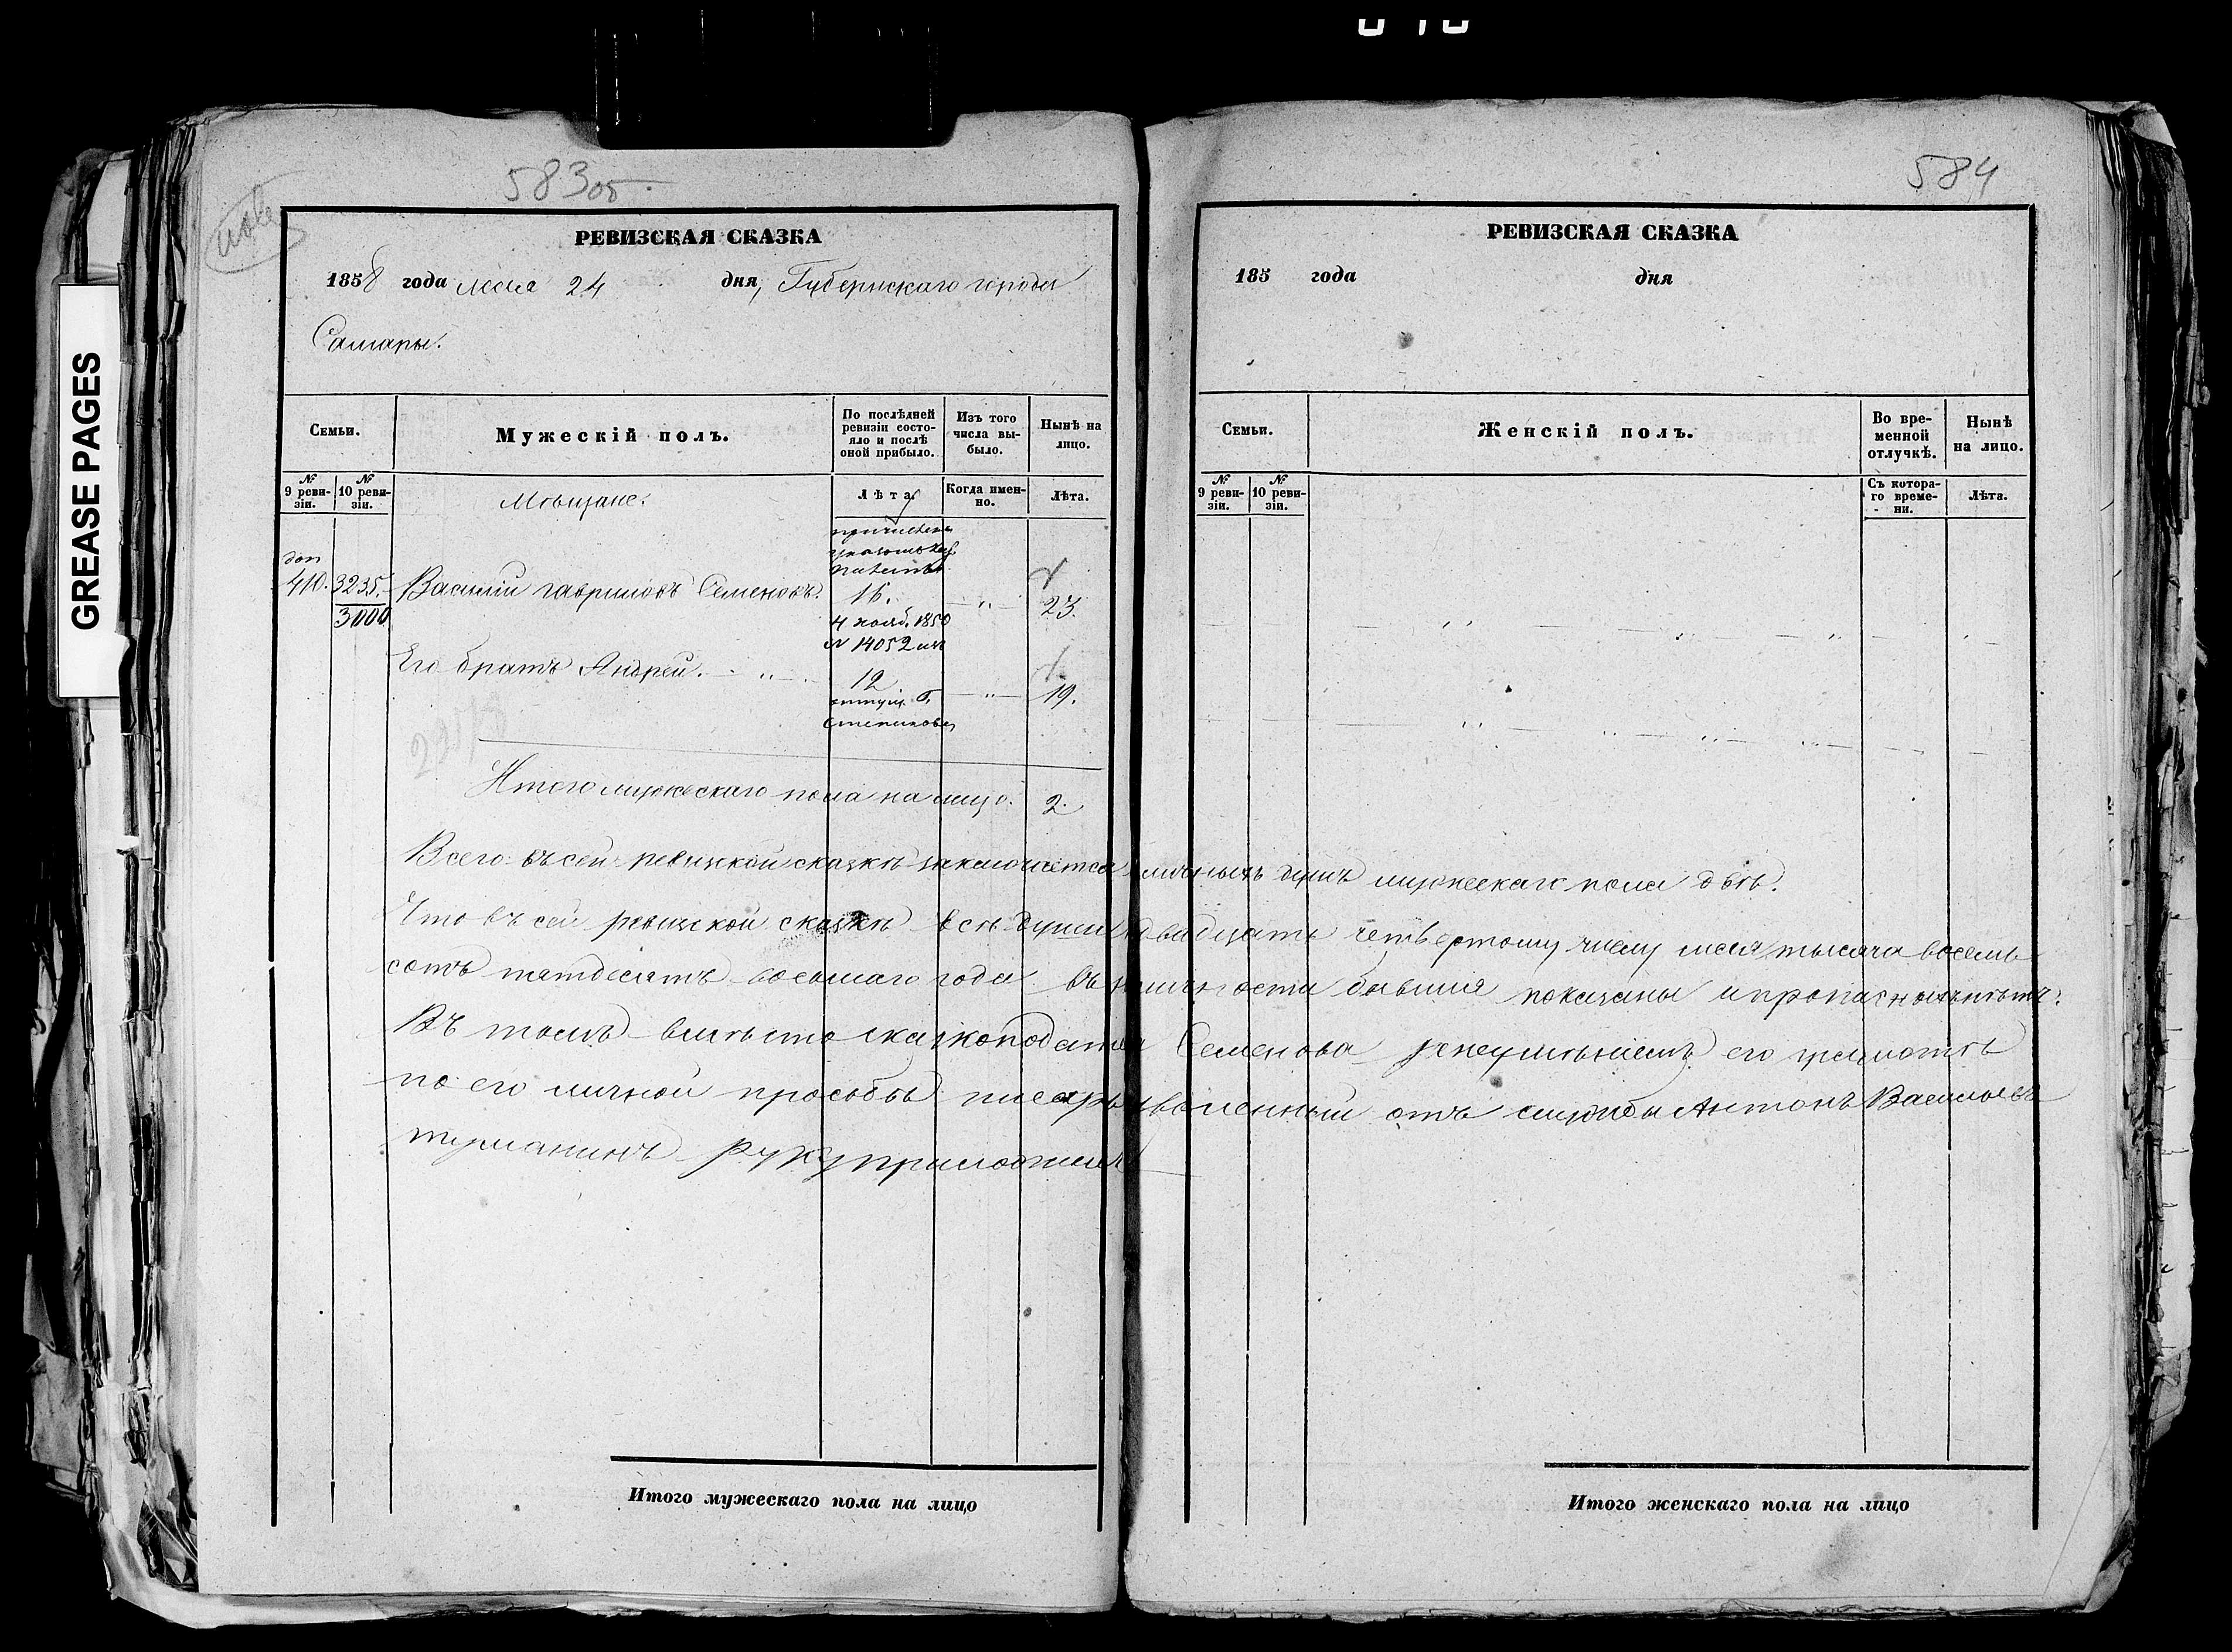 GREASE PAGES
583об.
РЕВИЗСКАЯ СКАЗКА
1858 года мая 24 дня, Губернскаго города
Самары.
Семьи.
Мужескій полъ.
По послѣдней ревизіи состояло и послѣ оной прибыло.
Изъ того числа выбыло.
Нынѣ на лицо.
№ 9 ревизіи.
№ 10 ревизіи.
Мѣщане.
Лѣта.
Когда именно.
Лѣта.
причислены
указомъ Каз.
палаты
доп
410. 3235. Василій гавриловъ Семеновъ. 16. — „ — 23.
3000
4 нояб. 1850
N 14052
Его братъ Андрей. — „ — 12 — „ — 19.
отпущ. г.
Итого мужескаго пола на лицо. 2.
Всего въ сей ревизской сказкѣ заключается наличныхъ душъ мужескаго пола двѣ.
Что въ сей ревизской сказкѣ всѣ души двадцать четвертому числу мая тысяча восемь
сотъ пятдесятъ восьмаго года въ наличности бывшия показаны и прописныхъ нѣтъ.
Въ томъ вмѣсто сказкоподателя Семенова за неумѣніемъ его грамотѣ
по его личной просьбѣ писарь уволенный отъ службы Антонъ Васильевъ
туманинъ руку приложилъ
Итого мужескаго пола на лицо
584
РЕВИЗСКАЯ СКАЗКА
185 года дня
Семьи.
Женскій полъ.
Во временной отлучкѣ.
Нынѣ на лицо.
№ 9 ревизіи.
№ 10 ревизіи.
Съ котораго времени.
Лѣта.
Итого женскаго пола на лицо